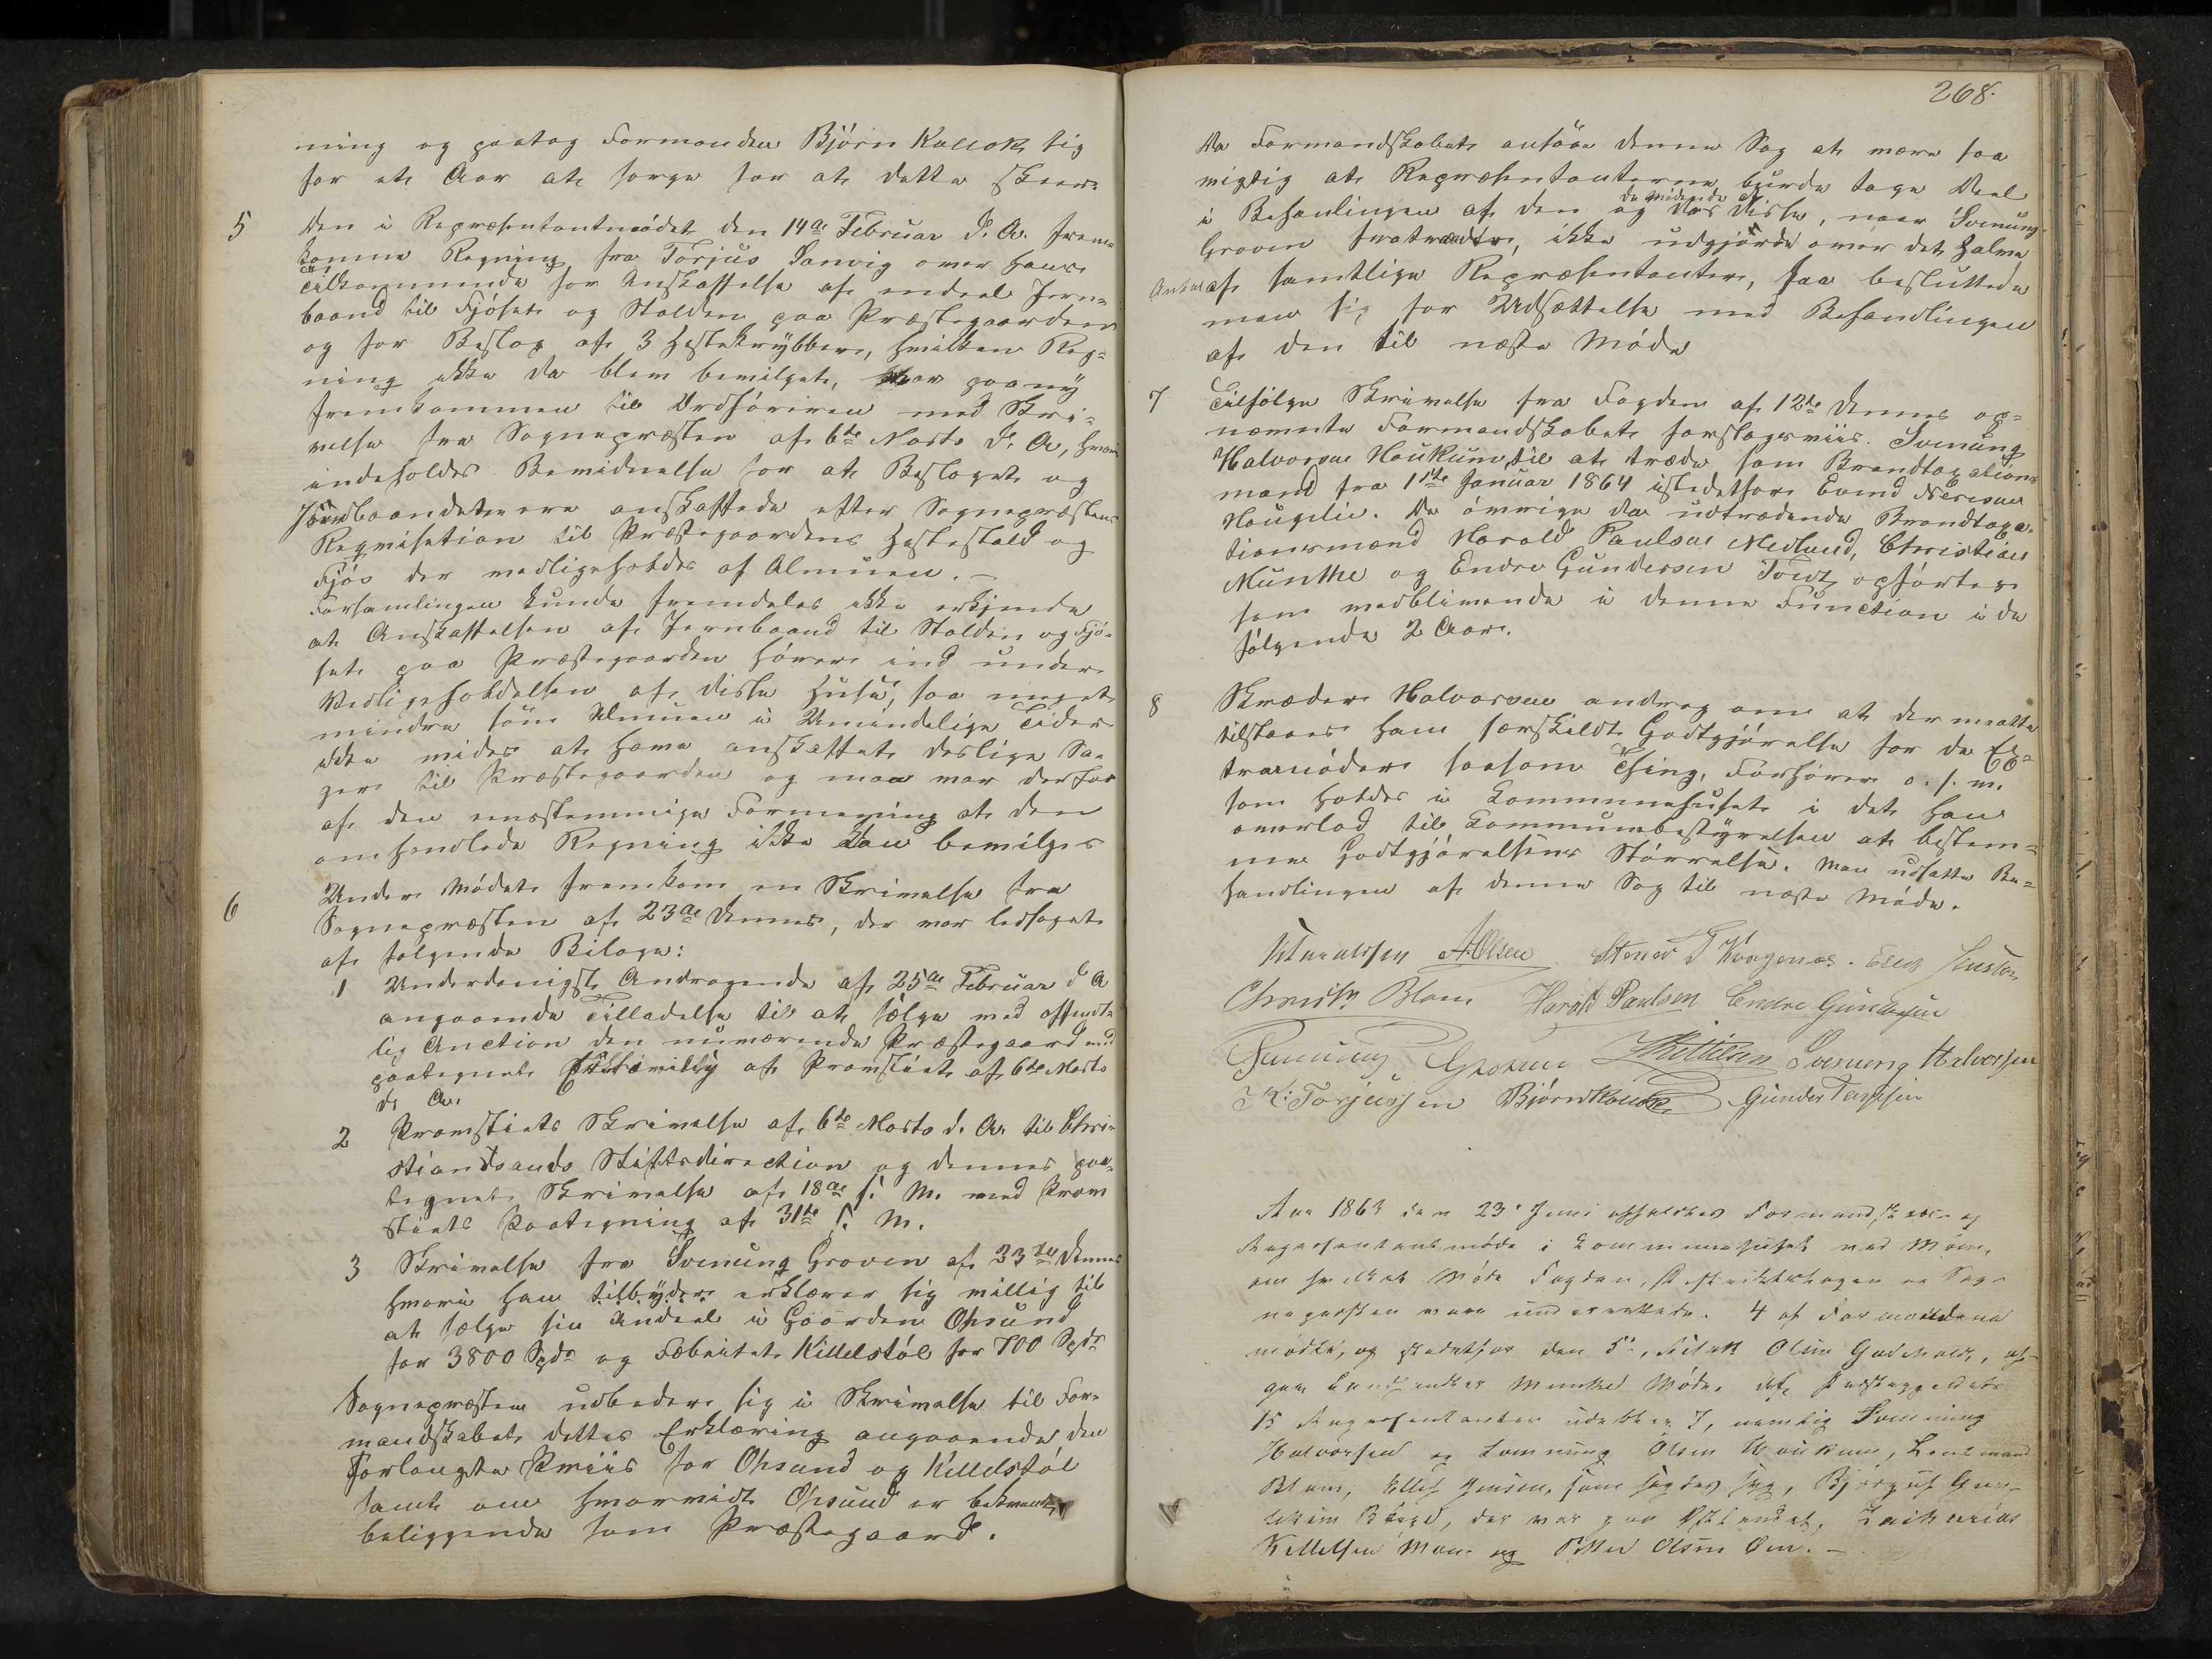 ning og paatog Formanden Bjørn Kallok sig
for et Aar at sørge for at dette skeer
5 Den i Repræsentantmødet den 14de Februar d. A. frem-
komne Regning fra Torjus Sanvig over hans
Tilkommende for Anskaffelse af endeel Jern-
baand til Fjøset og Stalden paa Præstegaarden
og for Beslag af 3 Hestekrybber, hvilken Reg-
ning ikke da blev bevilget, var paany
fremkommen til Ordføreren med Skri-
velse fra Sognepræsten af 6te Marts d. A., hvori
indeholdes Bevidnelse for at Beslaget og
Jernbaandene ere anskaffede efter Sognepræstens
Reqvisition til Præstegaardens Hestestald og
Fjøs der vedligeholdes af Almuen. –
Forsamlingen kunde fremdeles ikke erkjende
at Anskaffelsen af Jernbaand til Stalden og Fjø-
set paa Præstegaarden hører ind under
Vedligeholdelsen af disse Huse, saa meget
mindre som Almuen i Umindelige Tider
ikke vides at have anskaffet deslige Sa-
ger til Præstegaarden og man var derfor
af den eenstemmige Formening at den
omhandlede Regning ikke kan bevilges
6 Under Mødet fremkom en Skrivelse fra
Sognepræsten af 23de dennes, der var ledsaget
af følgende Bilage:
1 Underdanigst Andragende af 25de Februar d A
angaaende Tilladelse til at sælge ved offent-
lig Auction den nuværende Præstegaard med
paategnet af Provstiet af 6te Marts
d. A.
2 Provstiets Skrivelse af 6te Marts d. A. til Chri-
stiansands Stiftsdirection og dennes paa-
tegnet Skrivelse af 18de s. M. med Prov
stiets Paategning af 31te s. M.
3 Skrivelse fra Svenung Groven af 23de dennes
hvori han tilbyder erklærer sig villig til
at sælge sin Andeel i Gaarden Ohsund
for 3800 Spdr og Fæbeitet Killelstøl for 700 Spdr
Sognepræsten udbeder sig i Skrivelse til For-
mandskabet dettes Erklæring angaaende den
Forlangte Priis for Ohsund og Killelstøl
samt om hvorvidt Ohsund er bekvemt
beliggende som Præstegaard.
268.
Da Formandskabet ansaae denne Sag at være saa
vigtig at Repræsentanterne burde tage Deel
i Behandlingen af den og da de mødende af disse, naar Svenung
Groven fratraadte, ikke udgjorde over det halve
Antal af samtlige Repræsentanter, saa besluttede
man sig for Udsættelse med Behandlingen
af den til næste Møde
7 Tilfølge Skrivelse fra Fogden af 12te dennes op-
nævnte Formandskabet forslagsviis Svenung
Halvorsen Haukum til at træde som Brandtaxations
mand fra 1ste Januar 1864 istedetfor Eivind Neresen
Haugelie. De øvrige da udtrædende Brandtaxa-
tionsmænd Harald Paulsen Medlund, Christian
Munthe og Endre Gundersen opførtes
som vedblivende i denne Function i de
følgende 2 Aar.
8 Skræder Halvorsen androg om at der maatte
tilstaaes ham særskildt Godtgjørelse for de Ex-
tramøder saasom Thing, Forhører o. s. v.
som holdes i Kommunehuset i det han
overlod til Kommunebestyrelsen at bestem-
me Godtgjørelsens Størrelse. Man udsatte Be-
handlingen af denne Sag til næste Møde.
A. Olsen Stener T Kragenæs.
Christn Blom Harald Paulson Endre Gundersen
Svenung Groven Kittilsen Svenung Halvorsen
K. Torjussen Bjørn Kallok Gunder
Aar 1863 den 23. Juni afholdtes Formandskabs- og
Repræsentantmøde i Kommunehuset ved Moen,
om hvilket Møde Fogden, Distriktslægen og Sog-
nepræsten vare underrettede. 4 af Formændene
mødte, og istedetfor den 5te, Olsen
Munthe Møde. Af Præstegjeldets
15 Repræsentanter udebleve 7, nemlig Svenning
Halvorsen og Svennung Olsen Haukum, Lensmand
Blom, Ellef Jensen, som sagdes syg,
der var paa Østlandet, Zacharias
Kittelsen Moen og Peder Olsen Øen. –